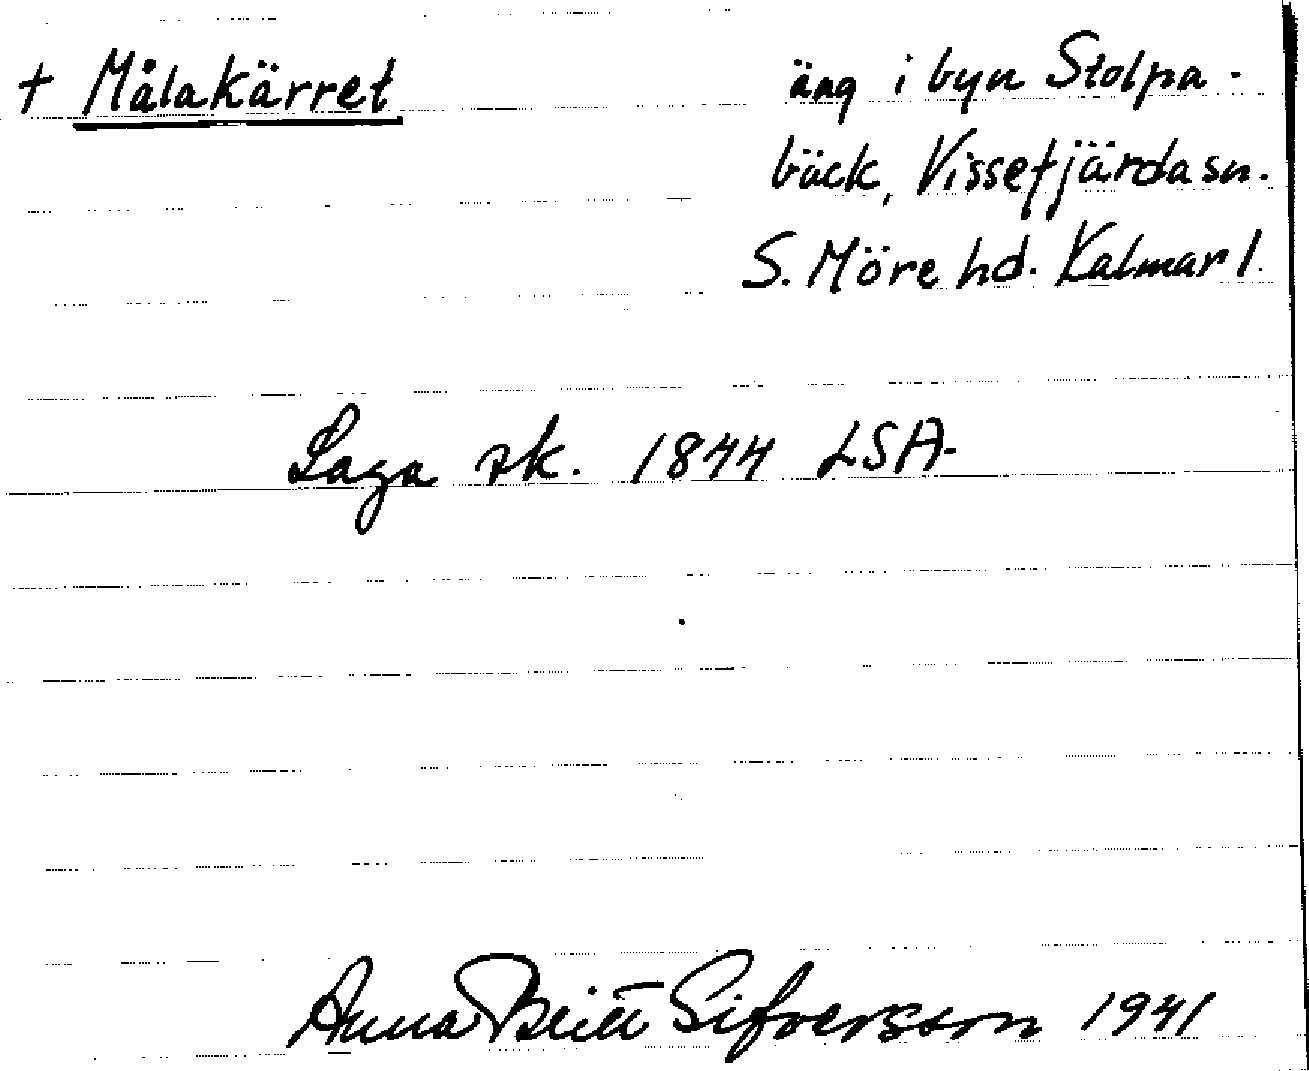 † Målakärret
äng i byn Stolpa-
bäck, Vissefjärda sn.
S. Möre hd. Kalmar l.
Laga sk. 1844 LSA.
Anna Britt Sifversson 1941